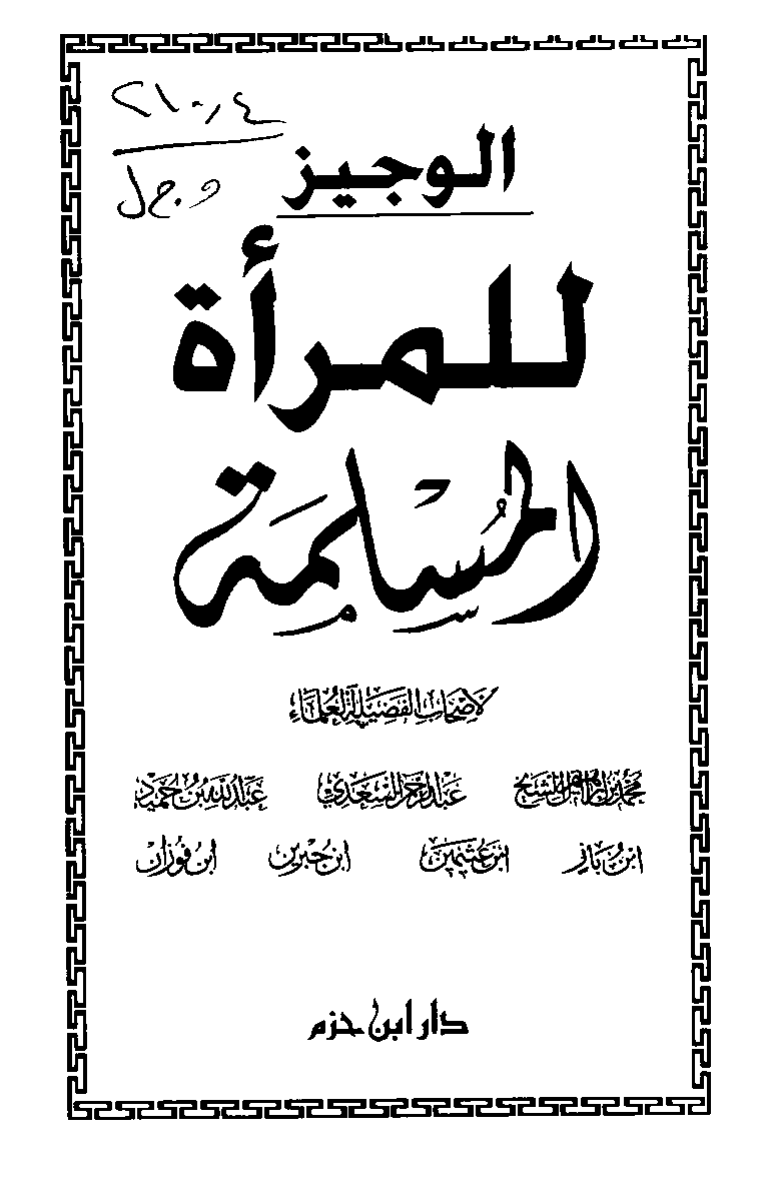 ٢١٠,٤
و. ج ل
الوجيز
للمرأة
المُسلمة
لأصحاب الفضيلة العُلماء
محمد بن إبراهيم آل الشيخ عبد الرحمن السعدي عبد الله بن حميد
ابن باز ابن عثيمين ابن جبرين ابن فوزان
دار ابن حزم